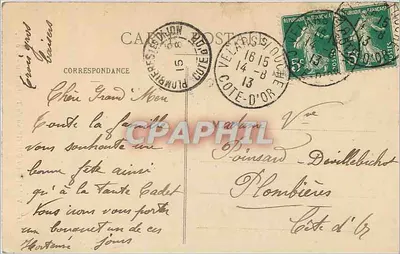 CARTE POSTALE
CORRESPONDANCE
PLOMBIERES-LES-DIJON
15-8
COTE D'OR
VELARS S/OUCHE
16 15
14-8
13
COTE-D'OR
5c
5c
Trois gros
baisers
Chère Grand'Mère
Toute la famille
vous souhaite une
bonne fête ainsi
qu'à la tante Cadet
Nous irons vous porter
un bouquet un de ces
jours
Madame Vve
Poinsard-Devillebichot
Plombières
Côte d'Or
CPAPHIL